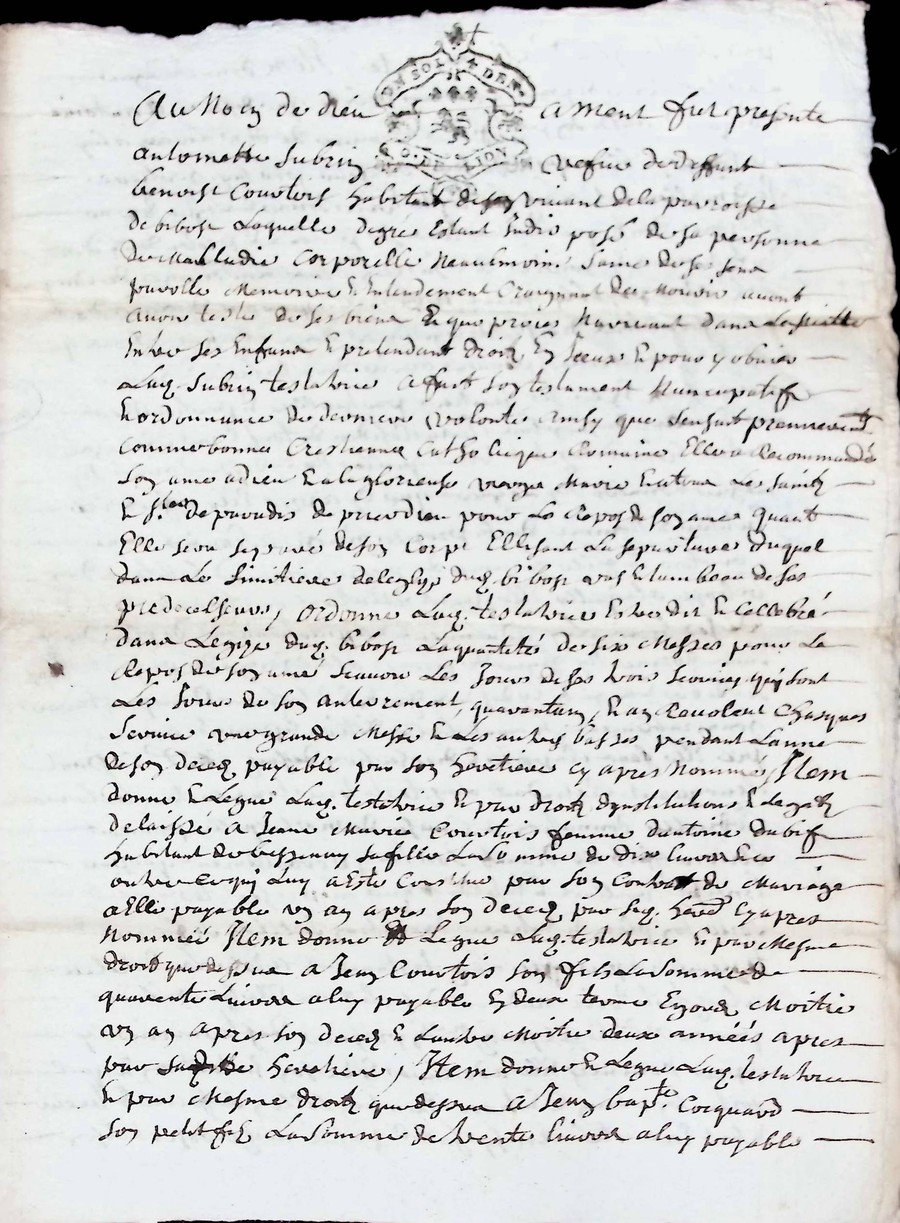 UN SOL 4 DEN.
G. DE LION
Au Nom de dieu ament fut presente
antoinette Subrin vefve de deffunt
benoist Courtois habitant de son vivant de la parroisse
de bibost Laquelle de gre Estant Indisposé de sa personne
de Malladie Corporelle Neanmoins saine de ses sens
parolle Memoire Et Entendement Craignant de Mourir avant
avoir teste de ses biens Et que proces Narrivant dans La suitte
Entre ses Enfans Et pretendant droit En Iceux Et pour y obvier
Laq. Subrin testatrice a fait son testament Nuncupatif
Et ordonnance de derniere volonte ainsy que sensuit premierement
Comme bonne Crestienne Catholicque Romaine Elle a Recommandé
son ame a dieu Et a la glorieuse vierge Marie Et a tous Les saints
Et s.tes de paradis de prier dieu pour Le Repos de son ame quant
Elle sera separée de son Corps Ellisant La sepulture duquel
dans Le Simitiere de leglize dud. bibost vas Et tombeau de ses
predecesseurs, ordonne Laq. testatrice Estre dit Et Cellebré
dans Leglize dud. bibost La quantité de six Messes pour Le
Repos de son ame scavoir Les Jours de ses trois services quy sont
Les Jours de son anterrement, quarantain, Et an Revoleut Chasques
service une grande Messe Et Les autres basses pendant Lanne
de son decedz payable par son heretiere cy apres Nommée, Item
donne Et Legue Laq. testatrice Et par droit dynstitutions Et Legatz
delaissé a Jeane Marie Courtois femme dantoine dubif
habitant de bessenay sa fille La somme de dix livres Et ce
outre Ce quy Luy a Este Constitue par son Contrat de Mariage
a Elle payable un an apres son decedz par sad. here Cy apres
Nommée Item donne Et Legue Laq. testatrice Et par Mesme
droit que dessus a Jean Courtois son fils La somme de
quarente Livres a luy payable En deux terme Egoux Moitie
un an apres son decedz Et Lautre Moitie deux années apres
par sadite heretiere, Item donne Et Legue Laq. testatrice
Et par Mesme droit que dessus a Jean bapte Cocquard
son petit fis La somme de trente livres a luy payable